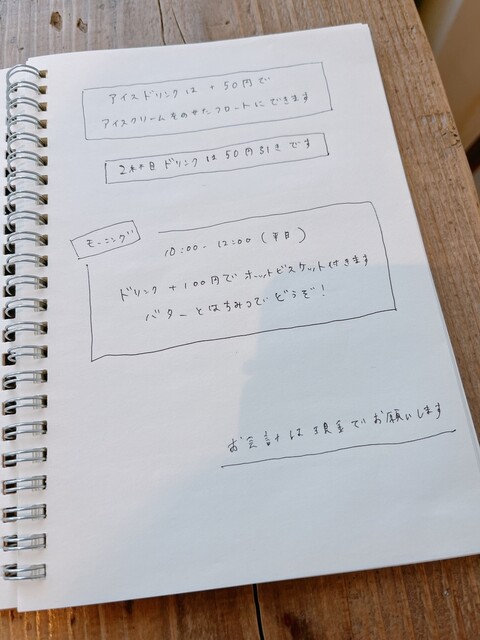 アイスドリンクは + 50円で
アイスクリームをのせたフロートにできます
2杯目ドリンクは50円引きです
モーニング
10:00 - 12:00 (平日)
ドリンク + 100円でホットビスケット付きます
バターとはちみつでどうぞ!
お会計は現金でお願いします